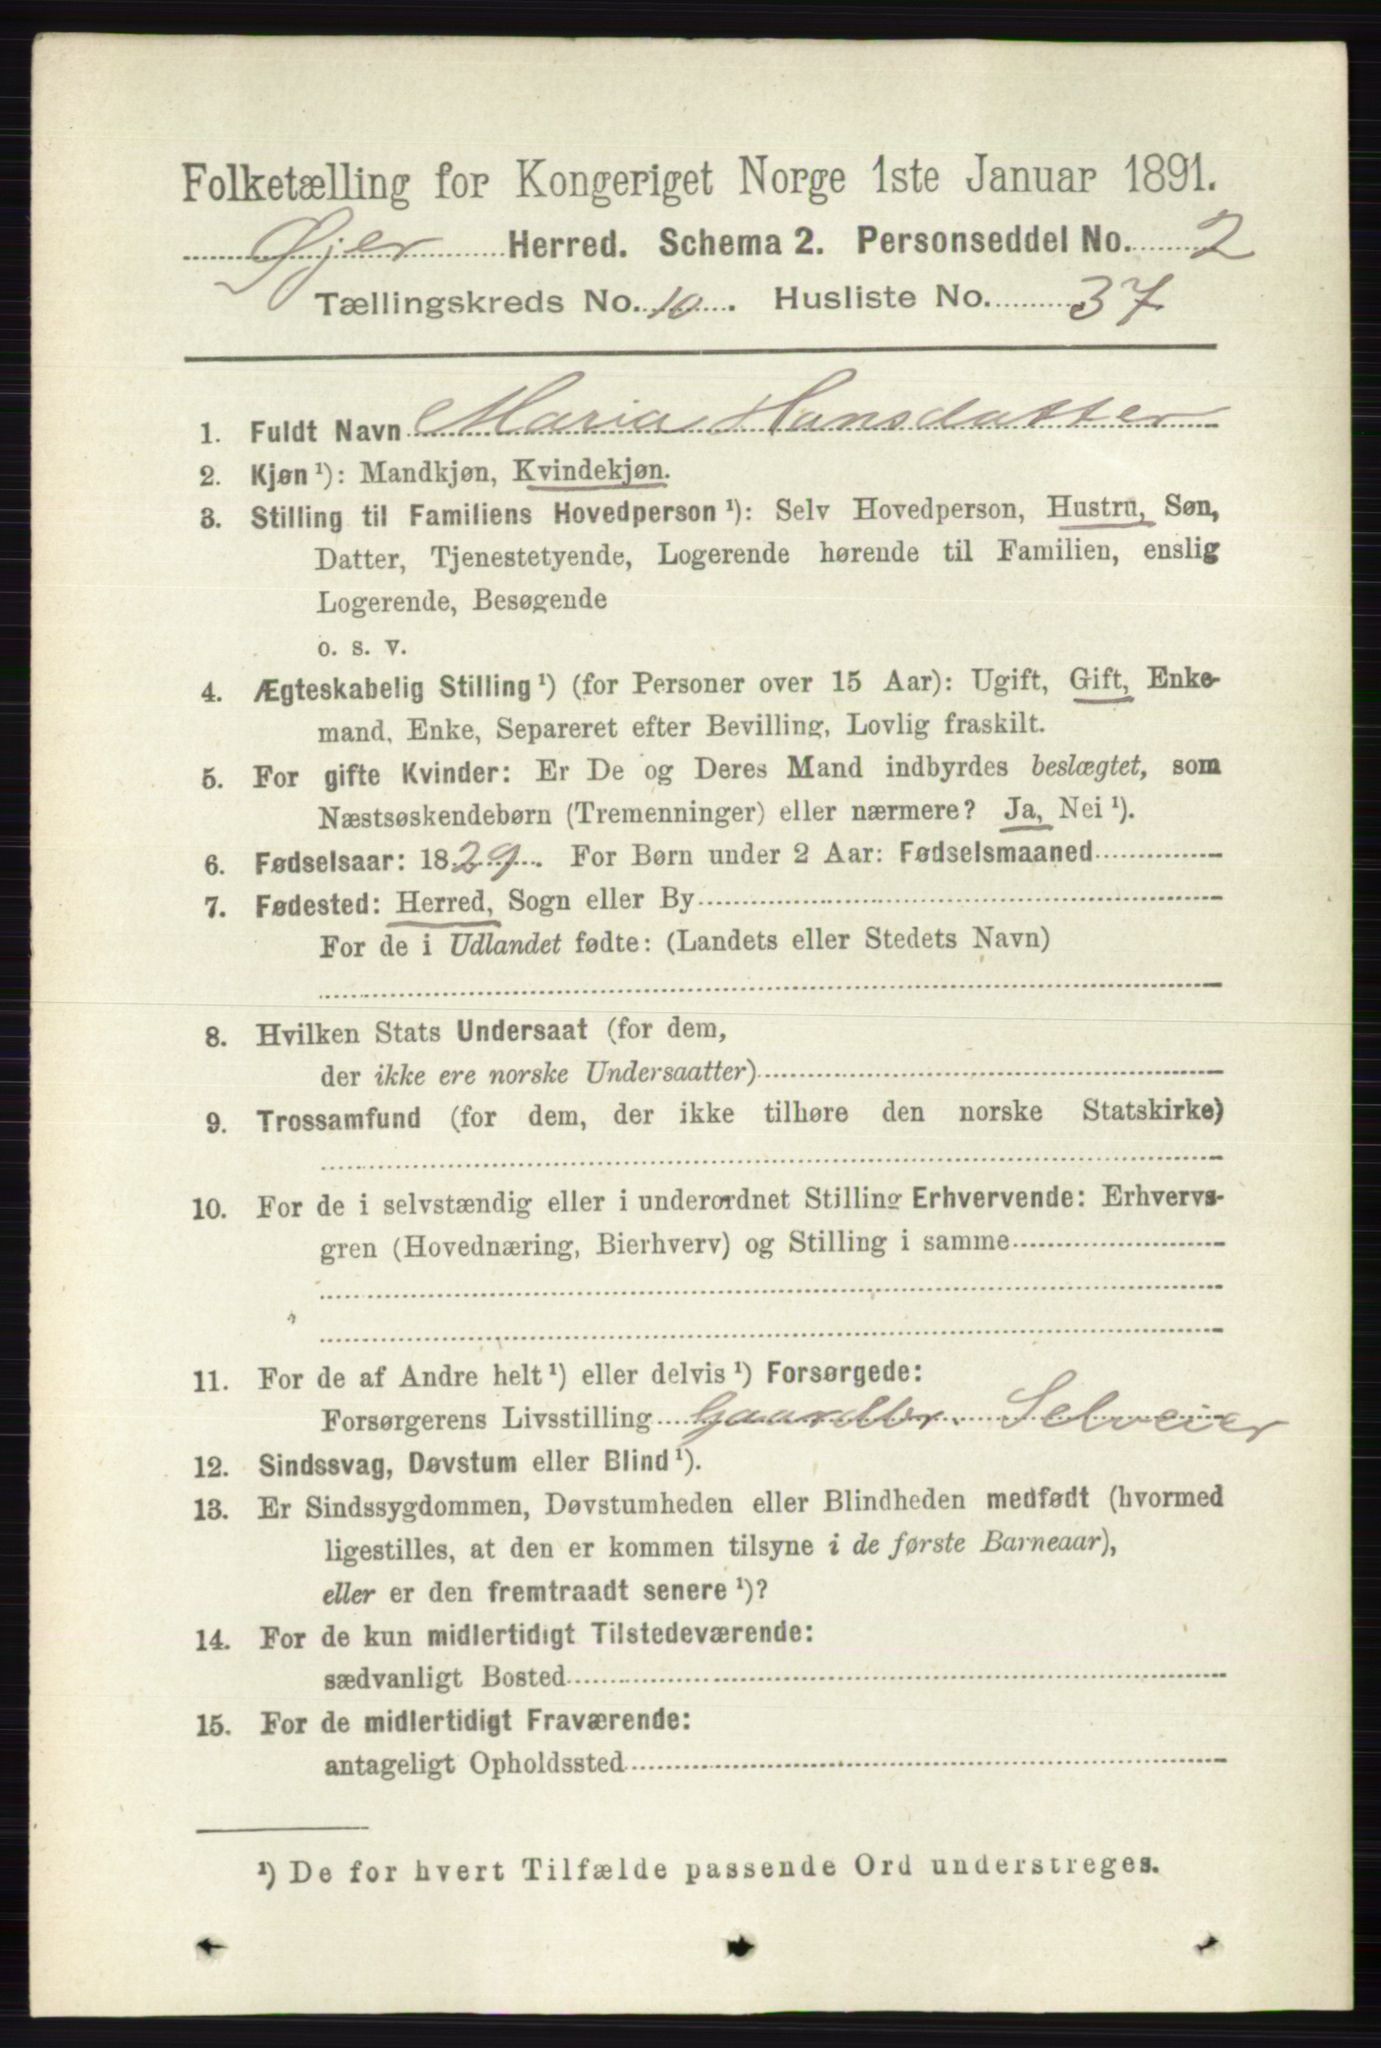 Folketælling for Kongeriget Norge 1ste Januar 1891.
Øjer Herred. Schema 2. Personseddel No. 2
Tællingskreds No. 10. Husliste No. 37
1. Fuldt Navn Maria Hansdatter
2. Kjøn ¹): Mandkjøn, Kvindekjøn.
3. Stilling til Familiens Hovedperson ¹): Selv Hovedperson, Hustru, Søn,
Datter, Tjenestetyende, Logerende hørende til Familien, enslig
Logerende, Besøgende
o. s. v.
4. Ægteskabelig Stilling ¹) (for Personer over 15 Aar): Ugift, Gift, Enke-
mand, Enke, Separeret efter Bevilling, Lovlig fraskilt.
5. For gifte Kvinder: Er De og Deres Mand indbyrdes beslægtet, som
Næstsøskendebørn (Tremenninger) eller nærmere? Ja, Nei ¹).
6. Fødselsaar: 1829. For Børn under 2 Aar: Fødselsmaaned
7. Fødested: Herred, Sogn eller By
For de i Udlandet fødte: (Landets eller Stedets Navn)
8. Hvilken Stats Undersaat (for dem,
der ikke ere norske Undersaatter)
9. Trossamfund (for dem, der ikke tilhøre den norske Statskirke)
10. For de i selvstændig eller i underordnet Stilling Erhvervende: Erhvervs-
gren (Hovednæring, Bierhverv) og Stilling i samme
11. For de af Andre helt ¹) eller delvis ¹) Forsørgede:
Forsørgerens Livsstilling Gaardbr. Selveier
12. Sindssvag, Døvstum eller Blind ¹).
13. Er Sindssygdommen, Døvstumheden eller Blindheden medfødt (hvormed
ligestilles, at den er kommen tilsyne i de første Barneaar),
eller er den fremtraadt senere ¹)?
14. For de kun midlertidigt Tilstedeværende:
sædvanligt Bosted
15. For de midlertidigt Fraværende:
antageligt Opholdssted
¹) De for hvert Tilfælde passende Ord understreges.